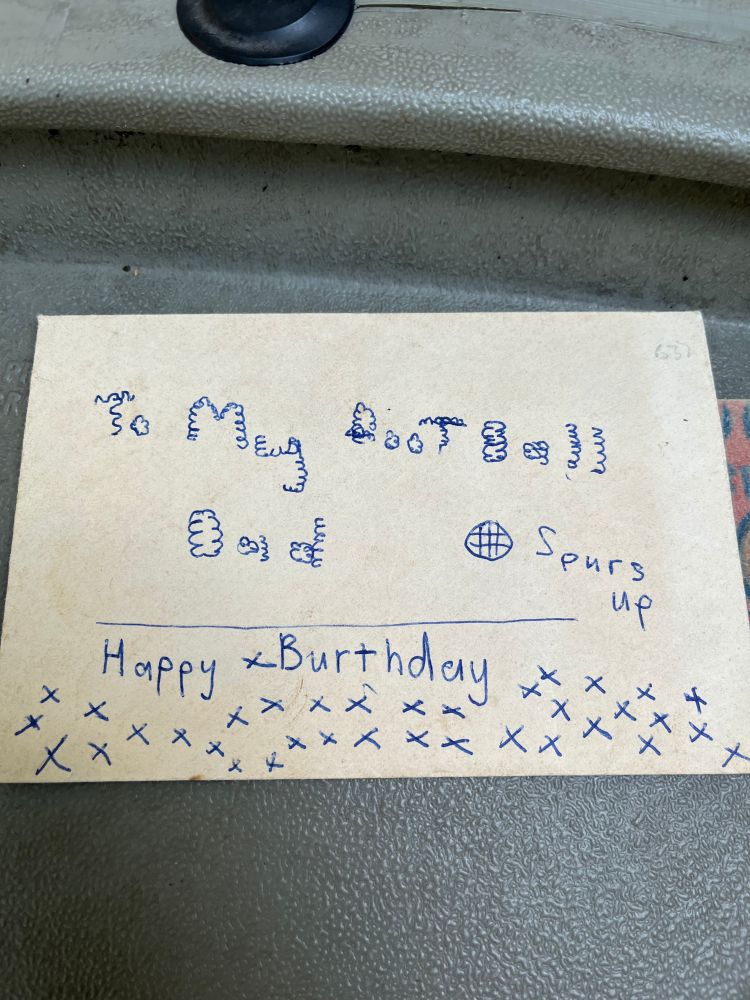 To My FooTBall
Dad Spurs
up
Happy x Burthday
x x x x x x
x x x x x x x x x x x
x x x x x x x x x x x x x x x x x x